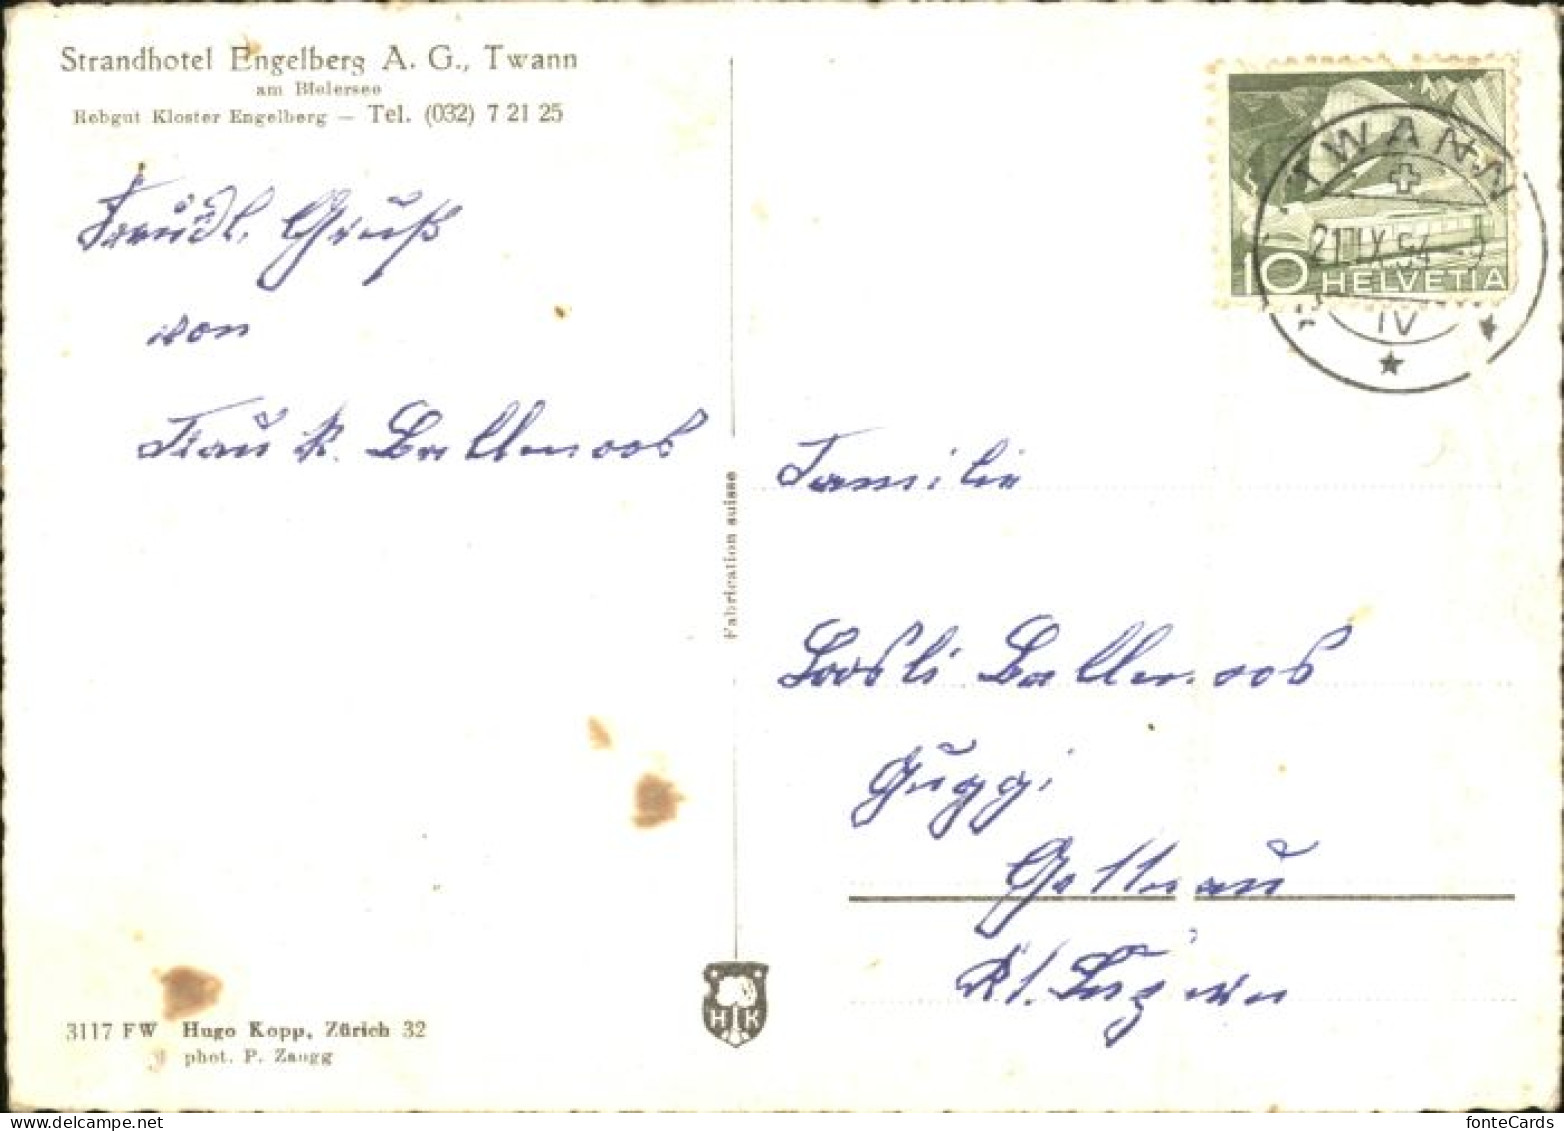 Strandhotel Engelberg A. G., Twann
am Bielersee
Rebgut Kloster Engelberg — Tel. (032) 7 21 25
Freudl. Gruß
von
Frau R. Ballmoos
Fabrication suisse
TWANN
21. IX. 54
IV
10 HELVETIA
Familie
Loosli Ballmoos
Guggi
Gettnau
Kt. Luzern
H K
3117 FW Hugo Kopp, Zürich 32
phot. P. Zaugg
fonteCards